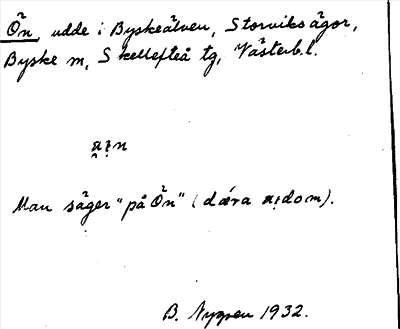 Ön, udde i Byskeälven, Storviksägor,
Byske sn, Skellefteå tg, Västerb.l.
Man säger "på Ön" (
B. Nygren 1932.